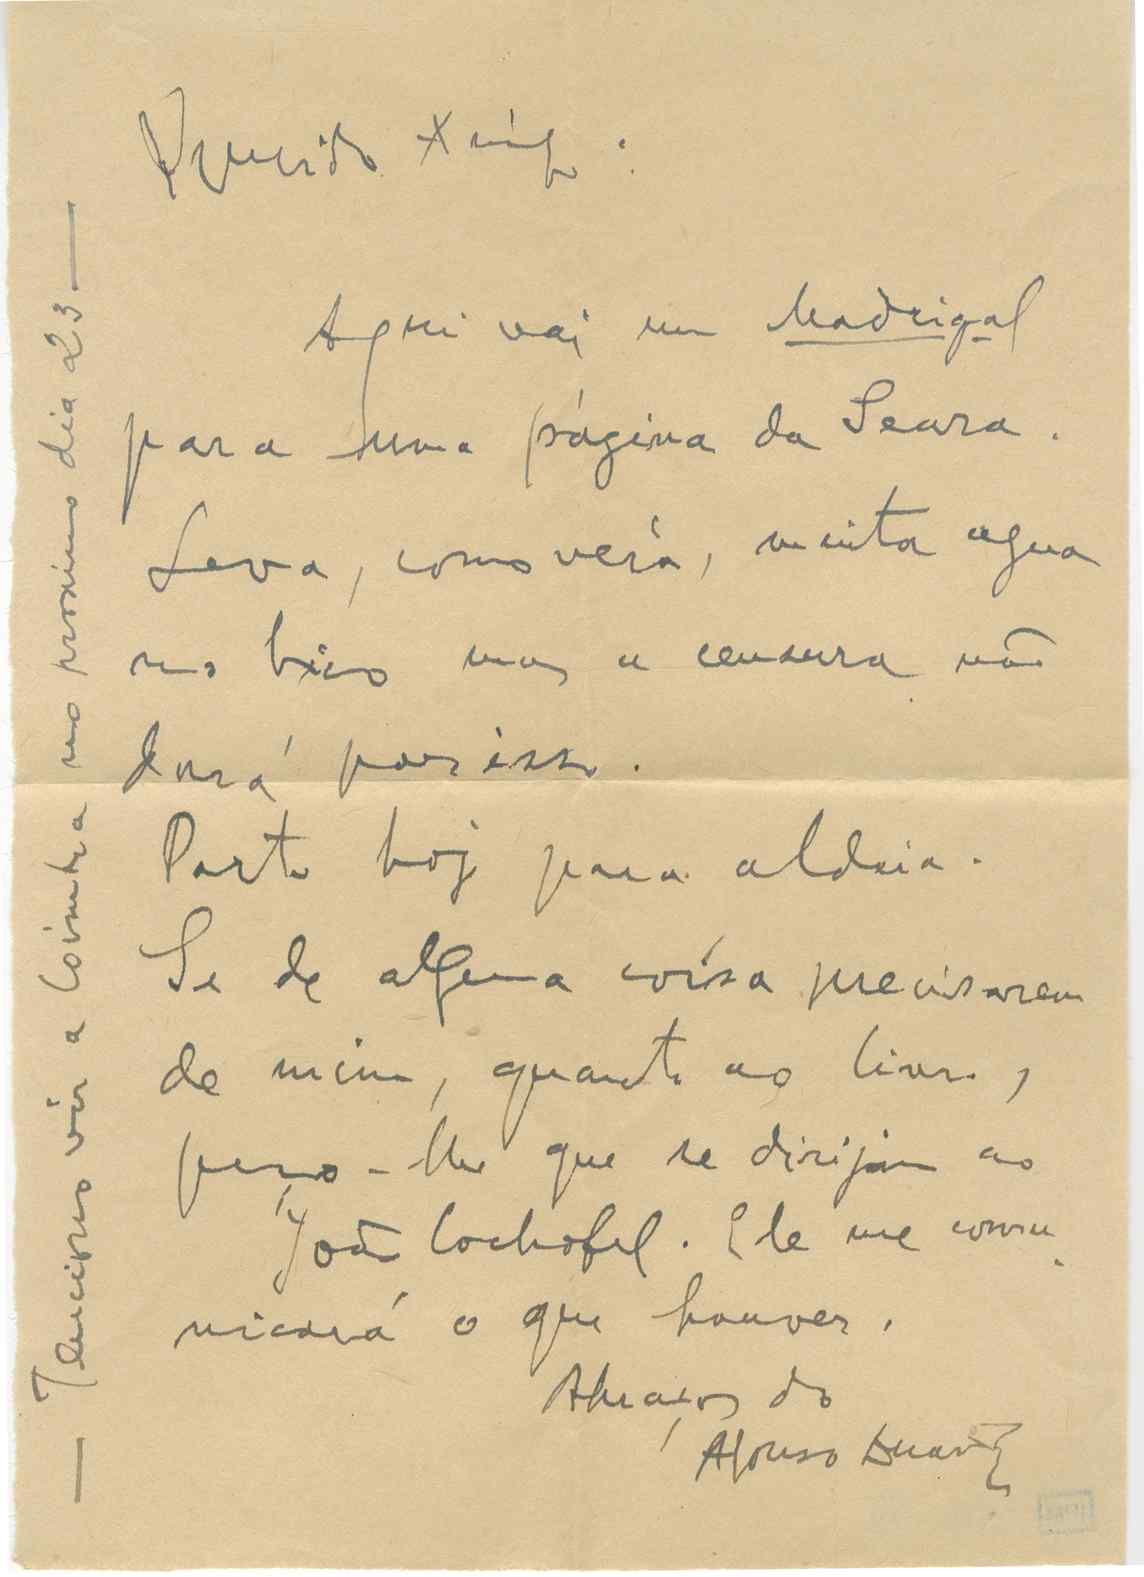 Querido Amigo:
Aqui vai um Madrigal
para uma página da Seara.
Leva, como verá, muita agua
no bico mas a censura não
dará por isso.
Parto hoje para aldeia.
Se de alguma coisa precisarem
de mim, quanto ao livro,
peço-lhe que se dirijam ao
João Cochofel. Ele me comu-
nicará o que houver.
Abraços do
Afonso Duarte
— Tenciono vir a Coimbra no proximo dia 23 —